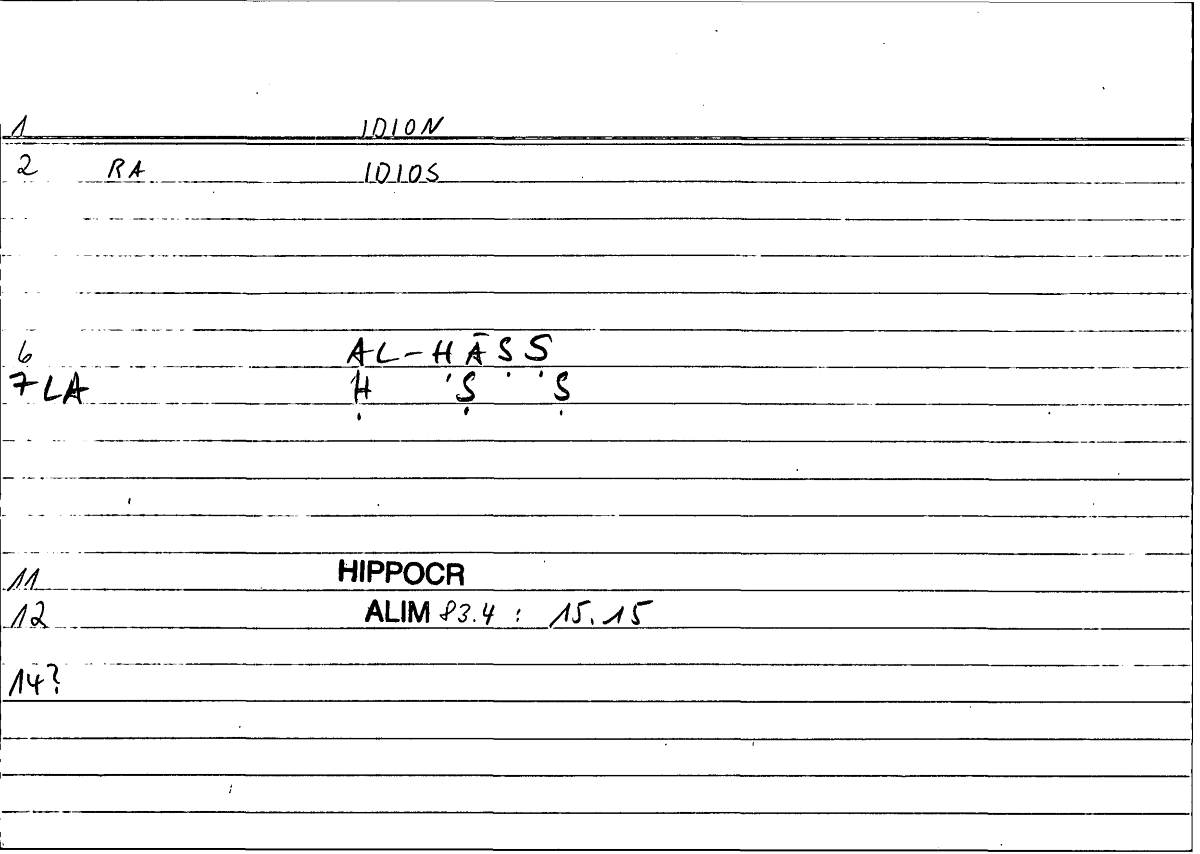 1 IDION
2 RA IDIOS
6 AL-HĀṢṢ
7 LA Ḥ 'Ṣ 'Ṣ
11 HIPPOCR
12 ALIM 83.4 : 15.15
14?